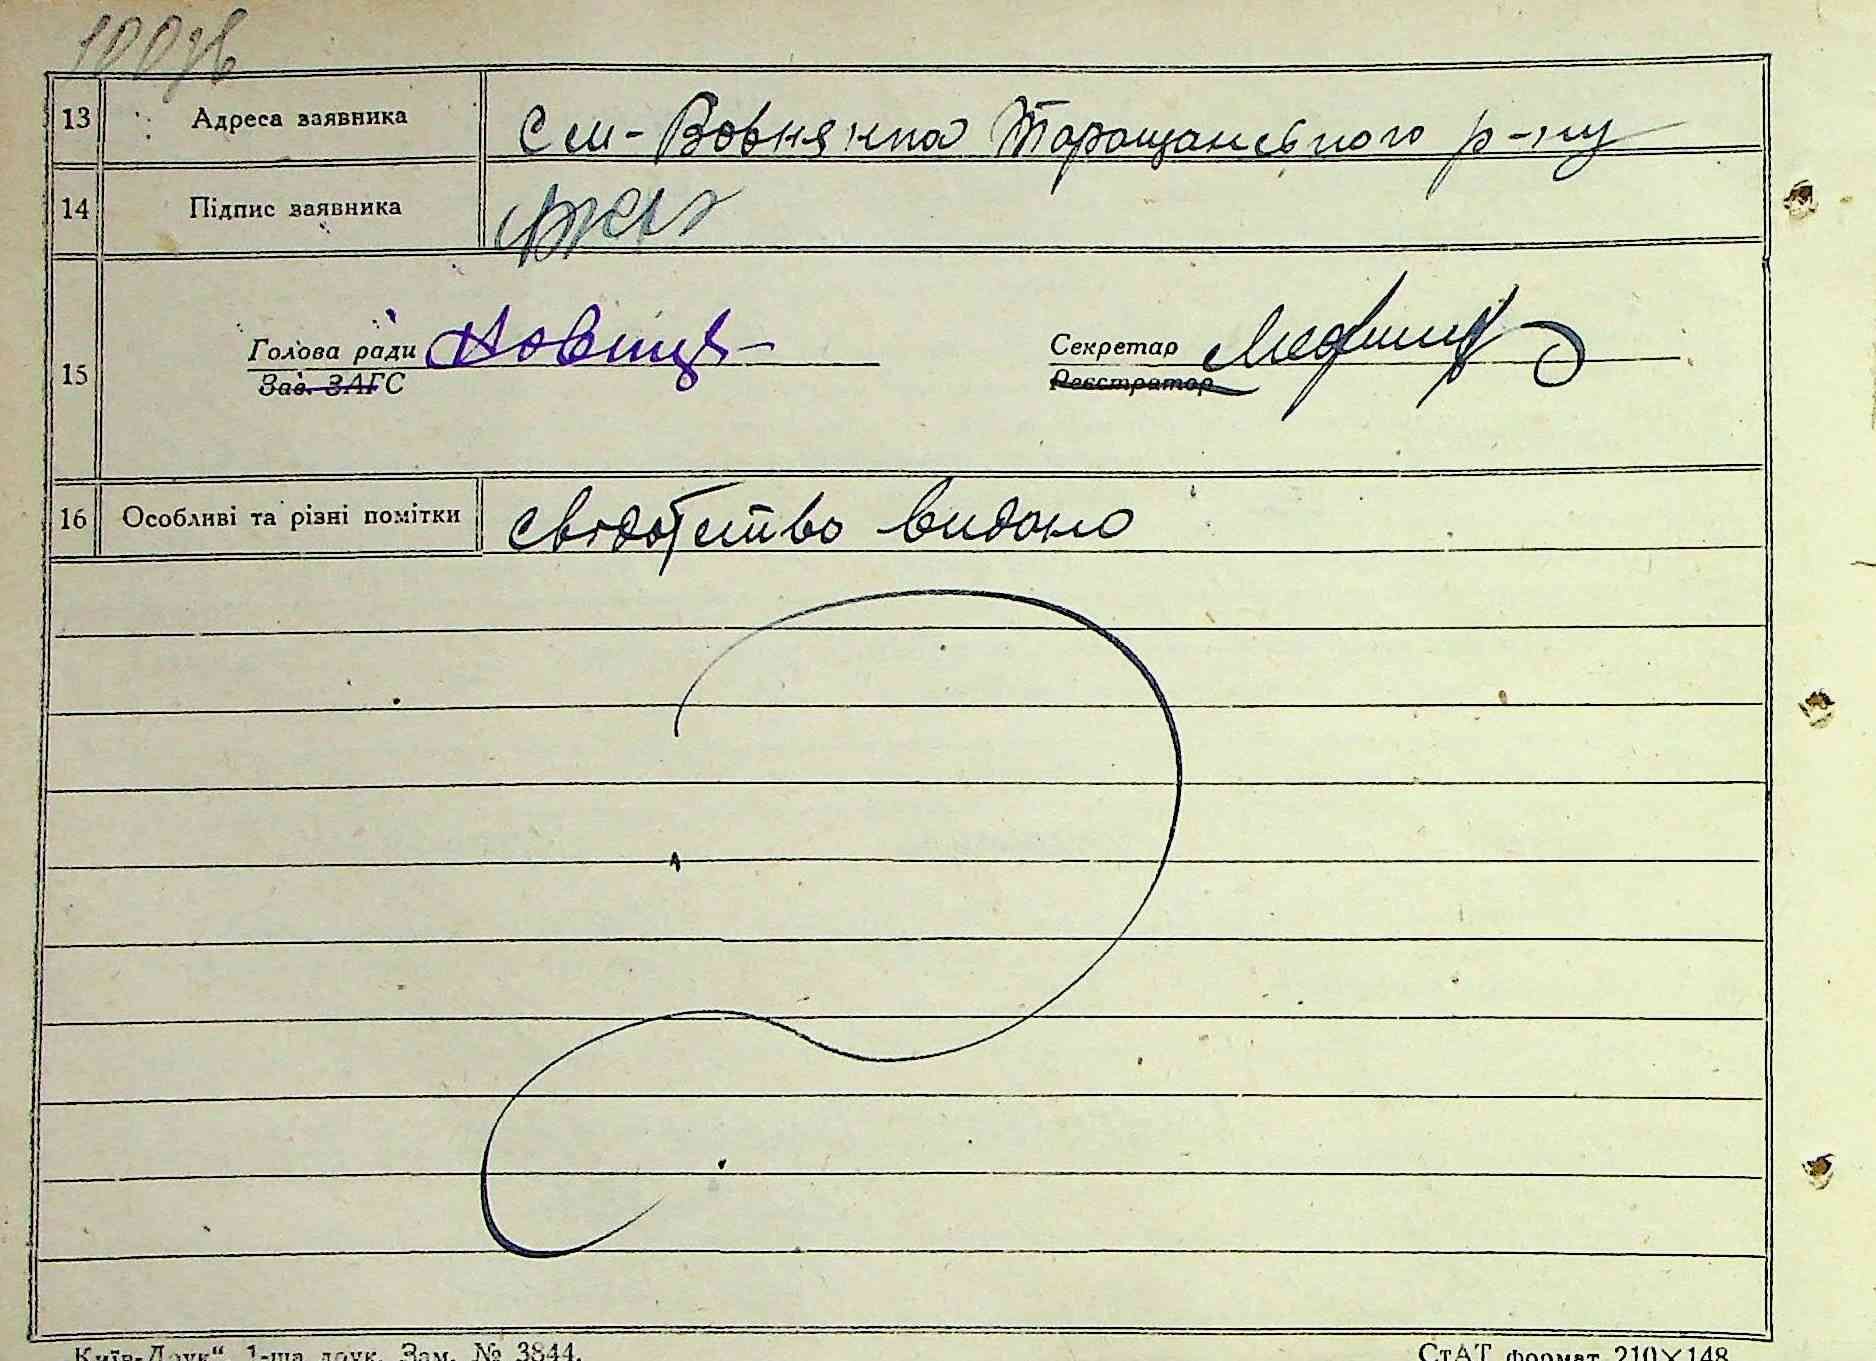 13 Адреса заявника См-Вовнянка Таращанського р-ну
14 Підпис заявника
15 Голова ради Секретар
Зав. ЗАГС Реєстратор
16 Особливі та різні помітки свідотство видано
Київ-Друк“, 1-ша друк. Зам. № 3844. СтАТ формат 210×148